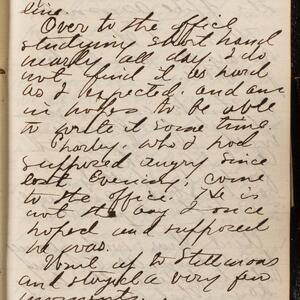 line.
Over to the office
studying short hand
nearly all day. I do
not find it as hard
as I expected, and am
in hopes to be able
to write it some time.
Charley, who I had
supposed angry since
last Evening, came
to the office. He is
not the boy I once
hoped and supposed
he was.
Went up to Stillmans
and stayed a very few
moments.